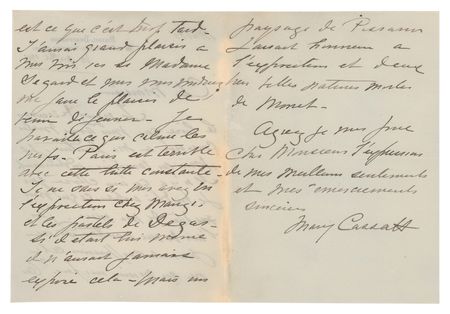 est ce que c'est trop tard.
J'aurais grand plaisir a
vous voir ici si Madame
Segard et vous vous
me faire le plaisir de
venir déjeuner. Je
travaille ce qui calme les
nerfs. Paris est terrible
avec cette lutte constante.
Je ne sais si vous avez vu
l'exposition chez Manzi,
et les pastels de Degas—
si c'etait lui même
il n'aurait jamais
exposé cela — Mais un
paysage de Pissarro
faisait honneur a
l'exposition et deux
très belles natures mortes
de Monet—
Agreez je vous prie
Cher Monsieur l'expression
de mes meilleurs sentiments
et mes remerciements
sinceres
Mary Cassatt